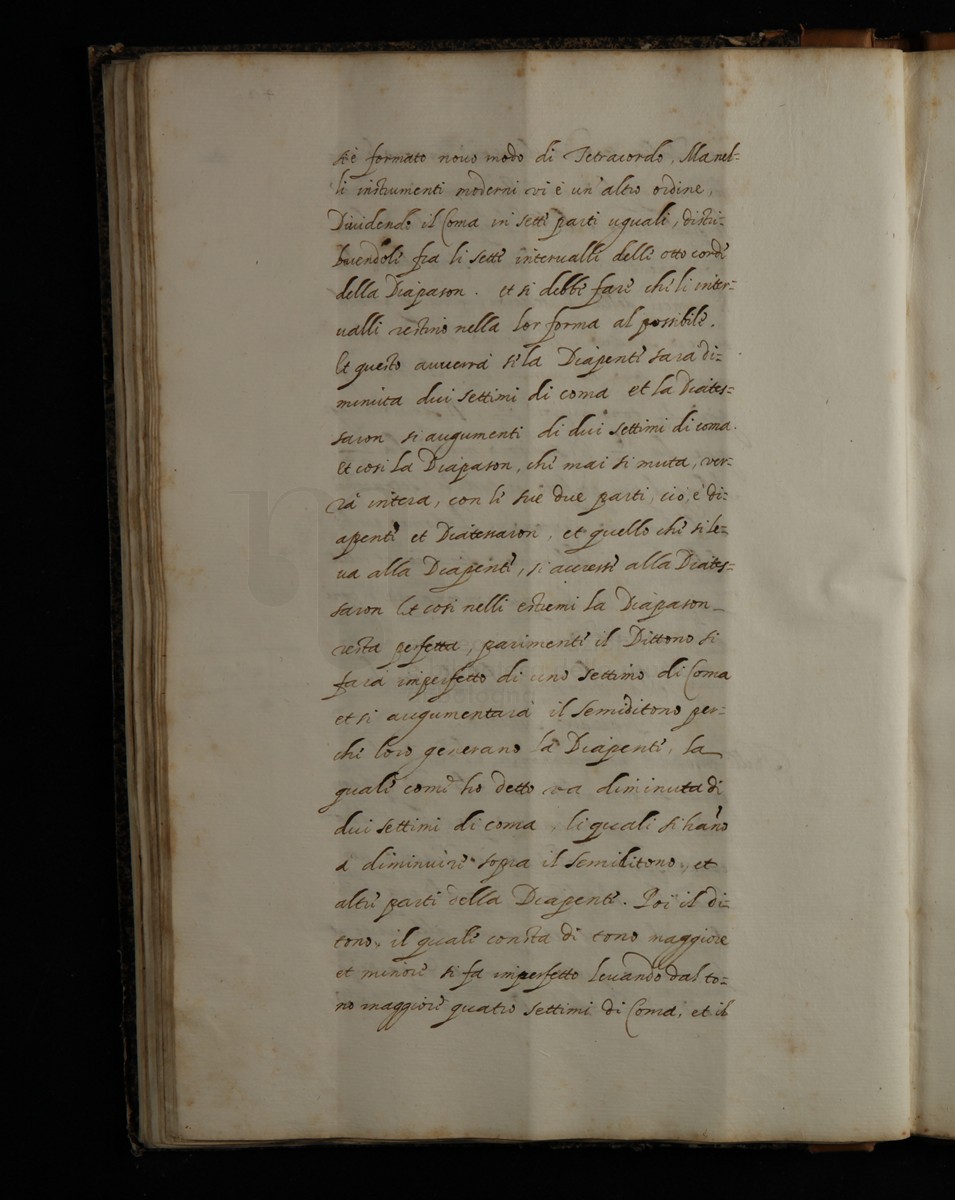 s'è formato novo modo di Tetracordo, Ma nel=
li instrumenti moderni vi è un'altro ordine,
Dividendo il Coma in sette parti uguali, distri=
buendoli fra li sette intervalli delle otto corde
della Diapason. et si debbe fare che li inter=
valli restino nella lor forma al possibile.
Et questo avverrà se la Diapente sarà di=
minuita dui settimi di coma et la Diates=
saron si augumenti di dui settimi di coma.
Et cosi la Diapason, che mai si muta, ver=
rà intera, con le sue due parti, ciò, è di=
apente et Diatessaron, et quello che si le=
va alla Diapente, si accresse alla Diates=
saron Et cosi nelli estremi la Diapason
resta perfetta, parimente il Dittono si
farà imperfetto di uno settimo di Coma
et si augumentarà il semiditono per=
che loro generano la Diapente, la
quale come ho detto va diminuta di
dui settimi di coma, li quali si hano
a diminuire sopra il semiditono, et
altre parti della Diapente. Poi il di=
tono, il quale consta di tono maggiore
et minore si fa imperfetto levando dal to=
no maggiore quatro settimi di Coma, et il